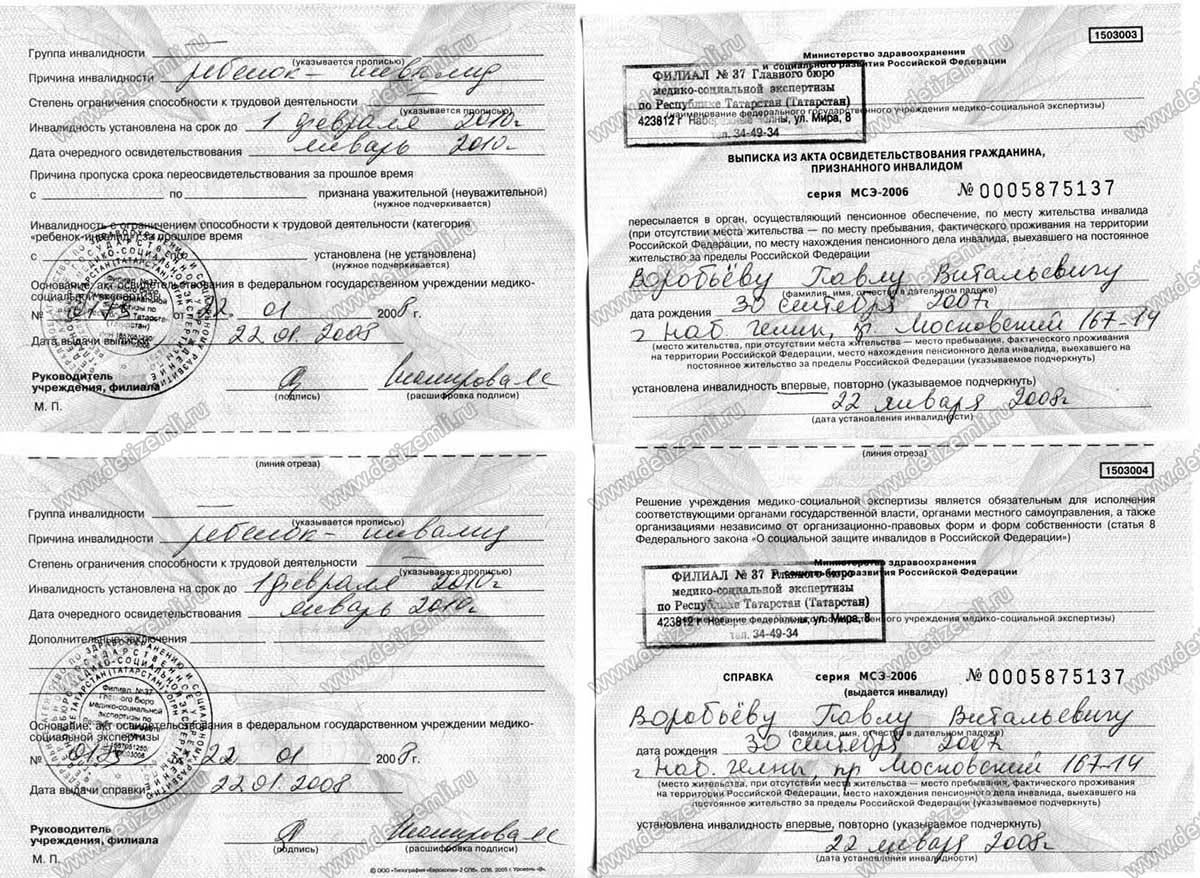 Группа инвалидности
(указывается прописью)
Причина инвалидности ребенок - инвалид
Степень ограничения способности к трудовой деятельности
(указывается прописью)
Инвалидность установлена на срок до 1 февраля 2010г
Дата очередного освидетельствования январь 2010г
Причина пропуска срока переосвидетельствования за прошлое время
с по признана уважительной (неуважительной)
(нужное подчеркивается)
Инвалидность с ограничением способности к трудовой деятельности (категория
«ребенок-инвалид») за прошлое время
с по установлена (не установлена)
(нужное подчеркивается)
Основание: акт освидетельствования в федеральном государственном учреждении медико-
социальной экспертизы
№ 0175 от 22. 01 2008 г.
Дата выдачи выписки 22.01.2008
Руководитель
учреждения, филиала
(подпись) (расшифровка подписи)
М. П.
1503003
Министерство здравоохранения
и социального развития Российской Федерации
ФИЛИАЛ № 37 Главного бюро
медико-социальной экспертизы
по Республике Татарстан (Татарстан)
423812 г Набережные Челны, ул. Мира, 8
тел. 34-49-34
(наименование федерального государственного учреждения медико-социальной экспертизы)
ВЫПИСКА ИЗ АКТА ОСВИДЕТЕЛЬСТВОВАНИЯ ГРАЖДАНИНА,
ПРИЗНАННОГО ИНВАЛИДОМ
серия МСЭ-2006 № 0005875137
пересылается в орган, осуществляющий пенсионное обеспечение, по месту жительства инвалида
(при отсутствии места жительства — по месту пребывания, фактического проживания на территории
Российской Федерации, по месту нахождения пенсионного дела инвалида, выехавшего на постоянное
жительство за пределы Российской Федерации)
Воробьёву Павлу Витальевичу
(фамилия, имя, отчество в дательном падеже)
дата рождения 30 сентября 2007г
г Наб. Челны, пр. Московский 167-14
(место жительства, при отсутствии места жительства — место пребывания, фактического проживания
на территории Российской Федерации, место нахождения пенсионного дела инвалида, выехавшего на
постоянное жительство за пределы Российской Федерации (указываемое подчеркнуть)
установлена инвалидность впервые, повторно (указываемое подчеркнуть)
22 января 2008г
(дата установления инвалидности)
(линия отреза)
Группа инвалидности
(указывается прописью)
Причина инвалидности ребенок - инвалид
Степень ограничения способности к трудовой деятельности
(указывается прописью)
Инвалидность установлена на срок до 1 февраля 2010г
Дата очередного освидетельствования январь 2010г
Дополнительные заключения
Основание: акт освидетельствования в федеральном государственном учреждении медико-
социальной экспертизы
№ 0175 от 22 01 2008 г.
Дата выдачи справки 22.01.2008
Руководитель
учреждения, филиала
(подпись) (расшифровка подписи)
М. П.
© ООО «Типография «Еврокопия-2 СПб», СПб, 2005 г. Уровень «В».
(линия отреза)
1503004
Решение учреждения медико-социальной экспертизы является обязательным для исполнения
соответствующими органами государственной власти, органами местного самоуправления, а также
организациями независимо от организационно-правовых форм и форм собственности (статья 8
Федерального закона «О социальной защите инвалидов в Российской Федерации»)
Министерство здравоохранения
и социального развития Российской Федерации
ФИЛИАЛ № 37 Главного бюро
медико-социальной экспертизы
по Республике Татарстан (Татарстан)
423812 г Набережные Челны, ул. Мира, 8
тел. 34-49-34
(наименование федерального государственного учреждения медико-социальной экспертизы)
СПРАВКА серия МСЭ-2006 № 0005875137
(выдается инвалиду)
Воробьёву Павлу Витальевичу
(фамилия, имя, отчество в дательном падеже)
дата рождения 30 сентября 2007г
г Наб. Челны пр Московский 167-14
(место жительства, при отсутствии места жительства — место пребывания, фактического проживания
на территории Российской Федерации, место нахождения пенсионного дела инвалида, выехавшего на
постоянное жительство за пределы Российской Федерации (указываемое подчеркнуть)
установлена инвалидность впервые, повторно (указываемое подчеркнуть)
22 января 2008г
(дата установления инвалидности)
www.detizemli.ru